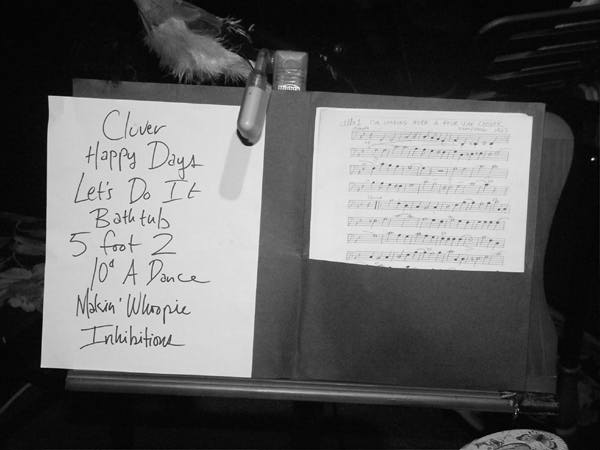 Clover
Happy Days
Let's Do It
Bathtub
5 foot 2
10¢ A Dance
Makin' Whoopie
Inhibitions
#1 I'M LOOKING OVER A FOUR LEAF CLOVER